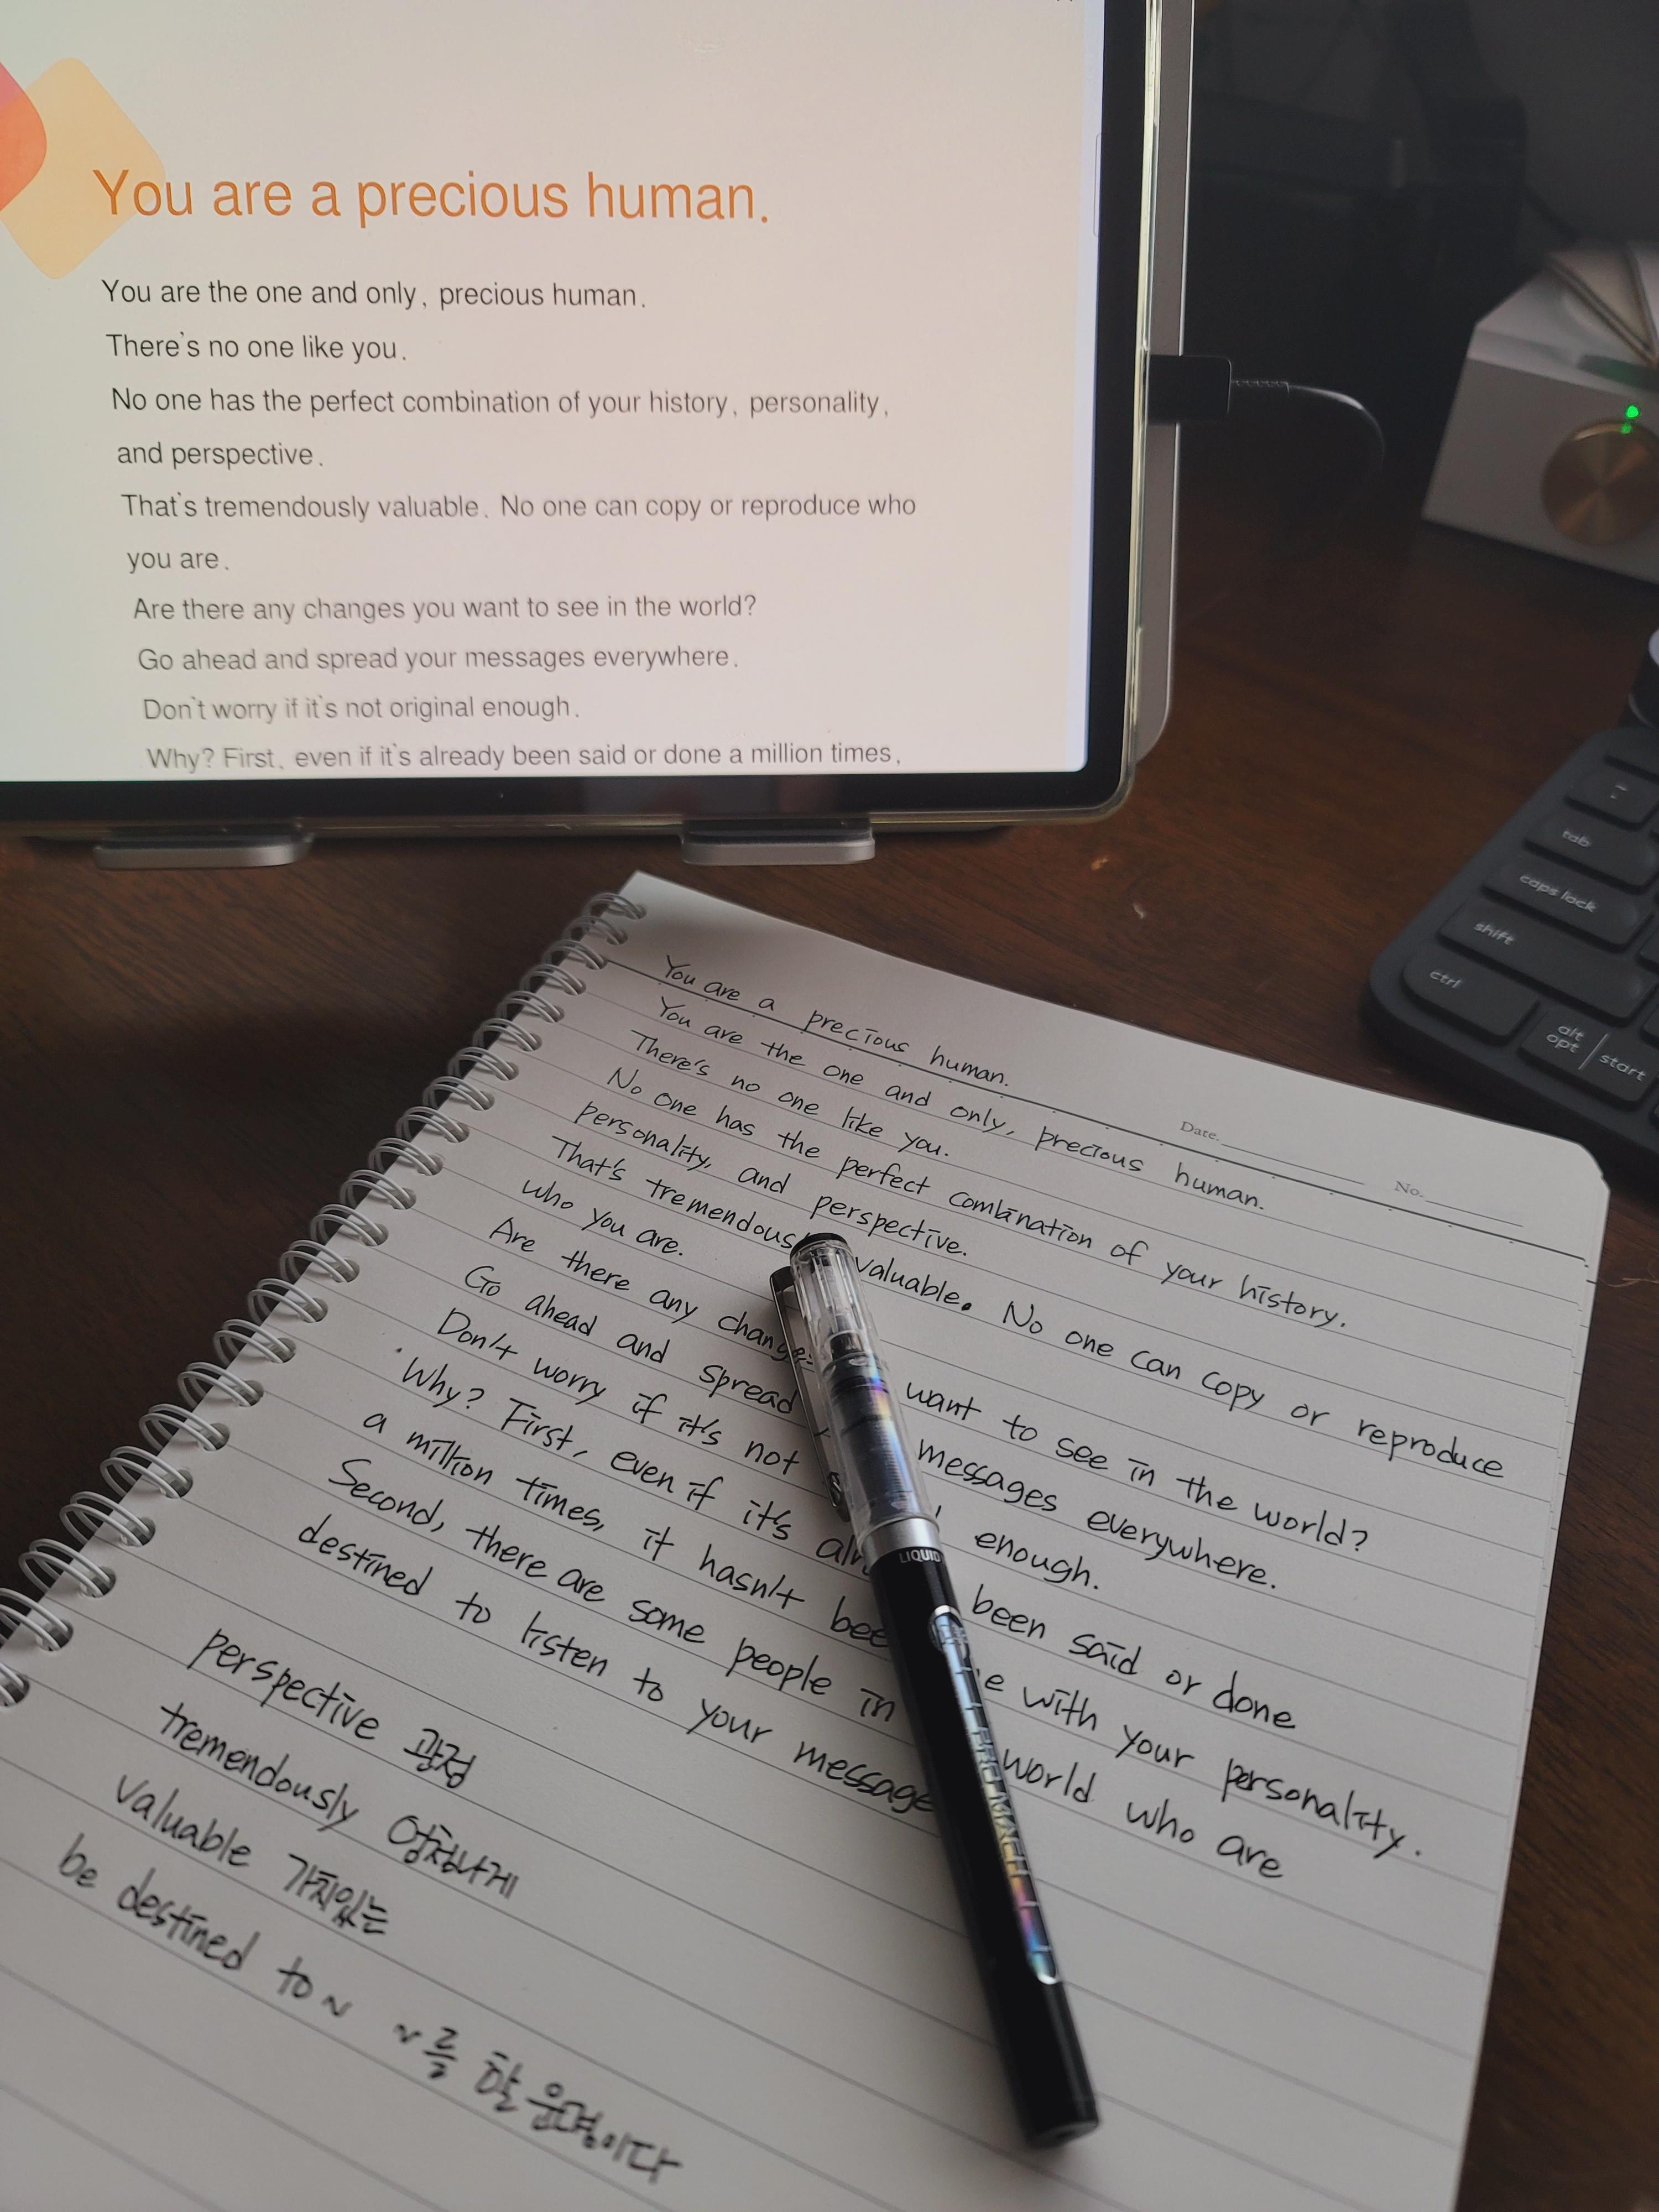 You are a precious human.
You are the one and only, precious human.
There's no one like you.
No one has the perfect combination of your history, personality,
and perspective.
That's tremendously valuable. No one can copy or reproduce who
you are.
Are there any changes you want to see in the world?
Go ahead and spread your messages everywhere.
Don't worry if it's not original enough.
Why? First, even if it's already been said or done a million times,
tab
caps lock
shift
ctrl
alt
opt
start
Date.
No.
You are a precious human.
You are the one and only, precious human.
There's no one like you.
No one has the perfect combination of your history.
personality, and perspective.
That's tremendous valuable. No one can copy or reproduce
who you are.
Are there any change want to see in the world?
Go ahead and spread messages everywhere.
Don't worry if it's not enough.
Why? First, even if it's been said or done
a million times, it hasn't with your personality.
Second, there are some people in world who are
destined to listen to your message
perspective 관점
tremendously 엄청나게
valuable 가치있는
be destined to~ ~를 할 운명이다
LIQUID